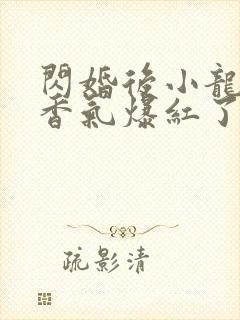 閃婚後小龍
香氣爆紅了
疏影清